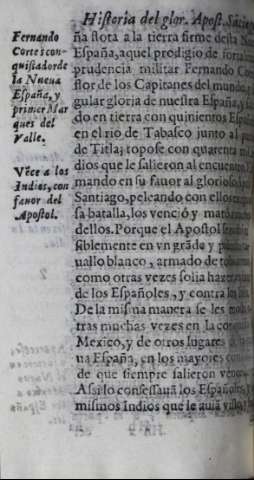 Historia del glor. Apost.
Fernando
Cortes con-
quistador de
la Nueua
España, y
primer Mar
ques del
Valle.
Vẽce a los
Indios, con
fauor del
Apostol.
ña flota a la tierra firme desta
España, aquel prodigio de
prudencia militar Fernando
flor de los Capitanes del mundo,
gular gloria de nuestra España, y
do en tierra con quinientos
en el rio de Tabasco junto al
de Titla; topose con quarenta
dios que le salieron al encuentro
mando en su fauor al glorioso
Santiago, peleando con ellos
sa batalla, los venció y
dellos. Porque el Apostol
siblemente en vn grãde y
uallo blanco, armado de
como otras vezes solia
de los Españoles, y contra los
De la misma manera se les
tras muchas vezes en la
Mexico, y de otros lugares
ua España, en los mayores
de que siempre salieron
Assi lo confessauã los Españoles,
mismos Indios que le auiã